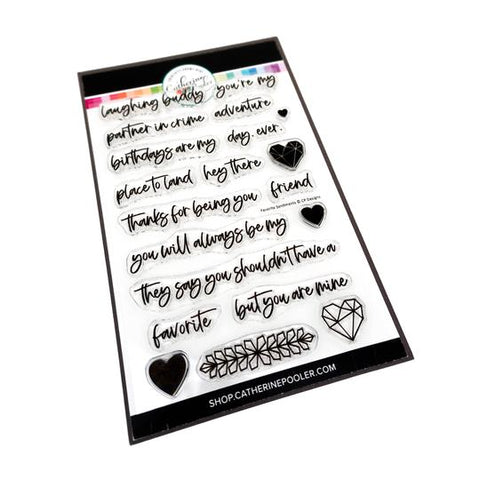 Catherine Pooler
laughing buddy you're my
partner in crime adventure
birthdays are my day, ever.
place to land hey there
thanks for being you friend
Favorite Sentiments © CP Designs
you will always be my
they say you shouldn't have a
favorite but you are mine
SHOP.CATHERINEPOOLER.COM